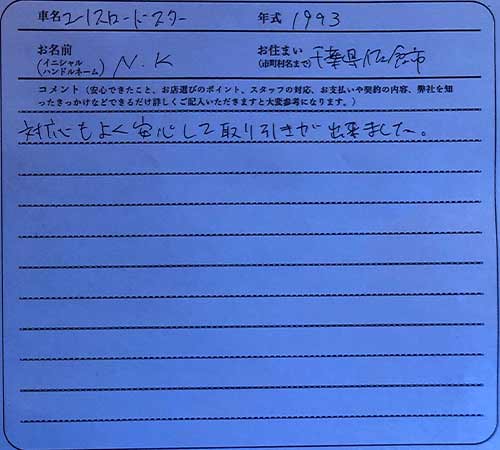 車名 ユーノスロードスター 年式 1993
お名前 (イニシャル ハンドルネーム) N.K お住まい (市町村名まで) 千葉県佐倉市
コメント(安心できたこと、お店選びのポイント、スタッフの対応、お支払いや契約の内容、弊社を知
ったきっかけなどできるだけ詳しくご記入いただきますと大変参考になります。)
対応もよく安心して取り引きが出来ました。